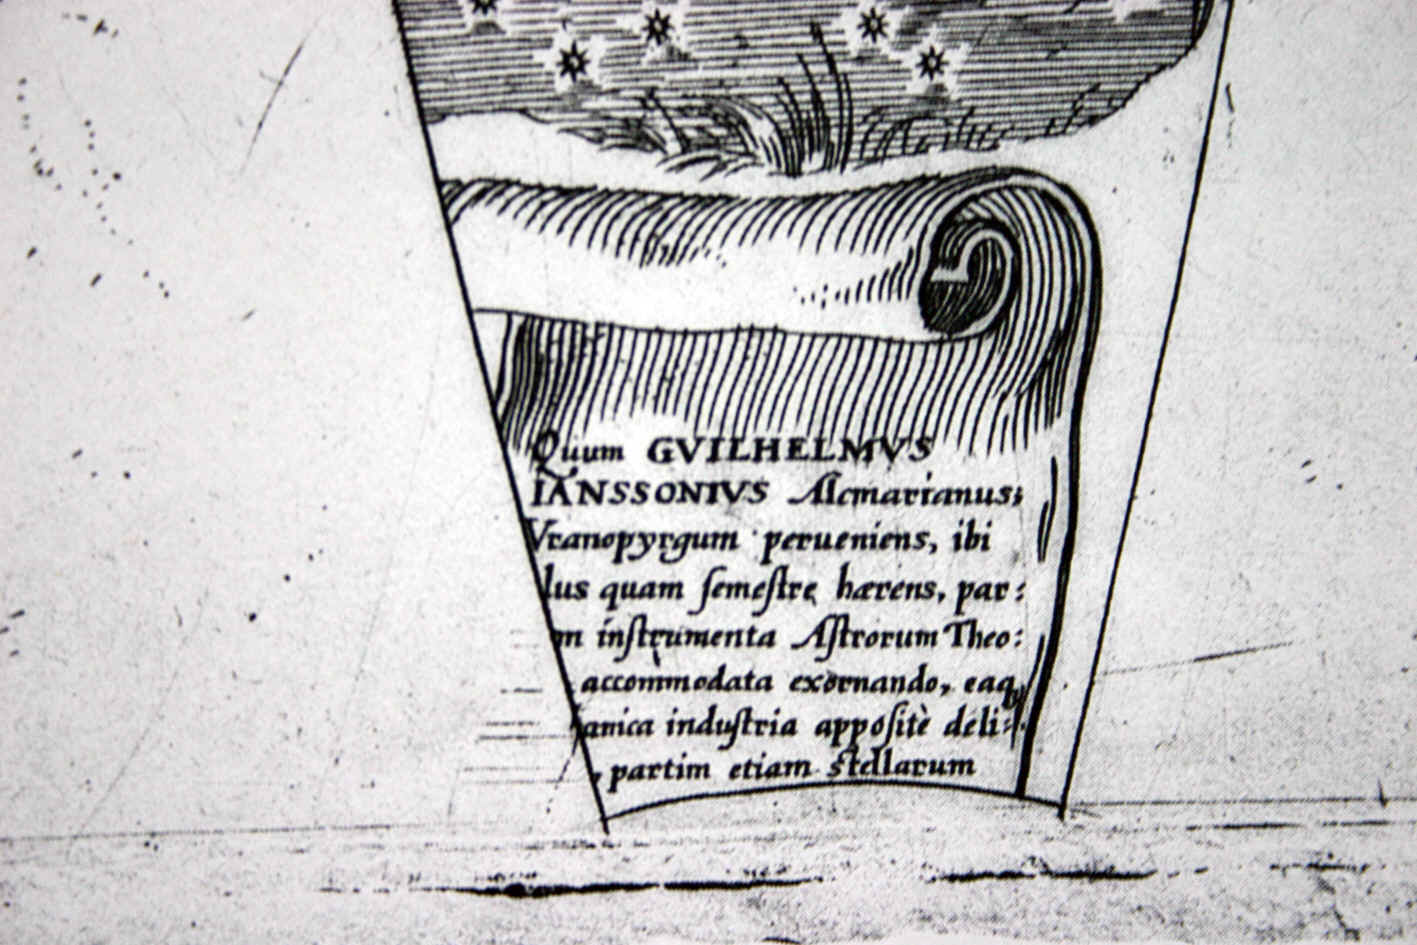 Quum GVILHELMVS
IANSSONIVS Alcmarianus;
Vranopyrgum perueniens, ibi
lus quam ſemeſtre hærens, par:
m inſtrumenta Aſtrorum Theo:
accommodata exornando, eaq
anica induſtria appoſitè deli:
, partim etiam stellarum